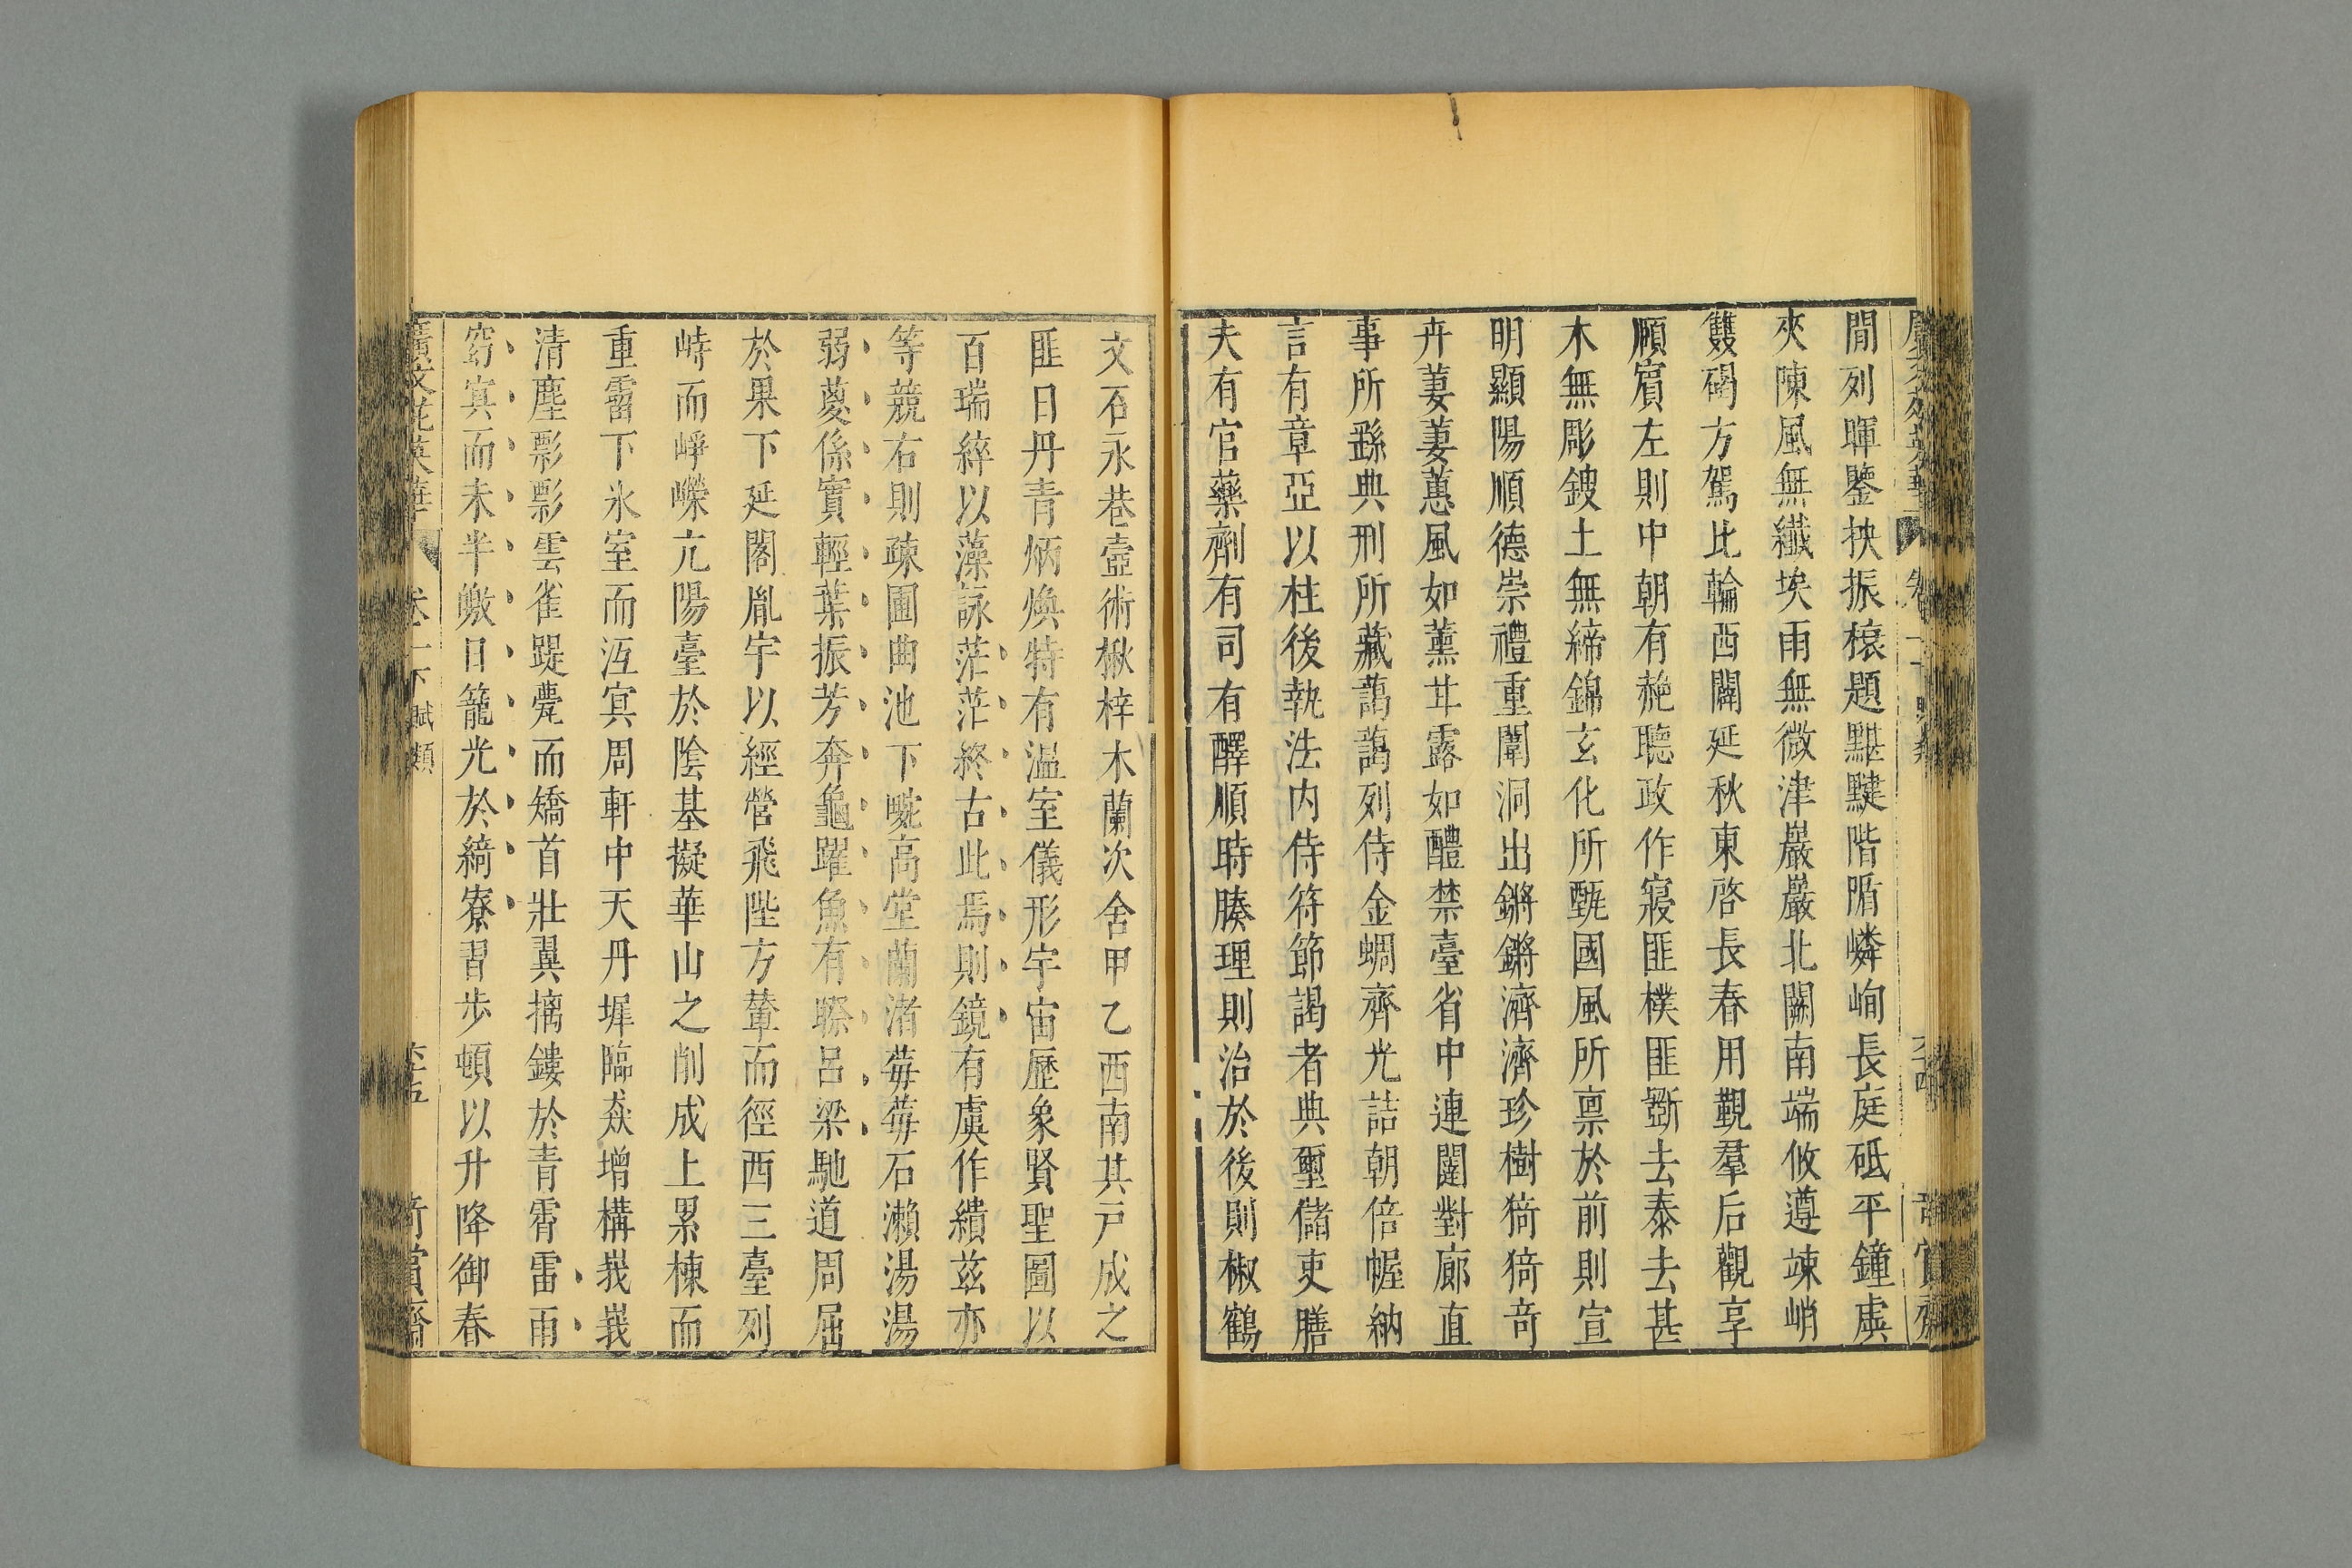 間列暉鑒抰振榱題黮䵴階䧝嶙峋長庭砥平鐘虡
夾陳風無纖埃雨無微津巖巖北闕南端攸遵竦峭
雙碣方駕比輪西闢延秋東啓長春用覲羣后觀享
頤賓左則中朝有赩聽政作寢匪樸匪斵去泰去甚
木無彫鎪土無綈錦玄化所甄國風所稟於前則宣
明顯陽順德崇禮重闈洞出鏘鏘濟濟珍樹猗猗奇
卉萋萋蕙風如薰甘露如醴禁臺省中連闥對廊直
事所繇典刑所藏藹藹列侍金蜩齊光詰朝倍幄納
言有章亞以柱後執法内侍符節謁者典璽儲吏膳
夫有官藥劑有司有醳順時腠理則治於後則椒鶴
文石永巷壼術楸梓木蘭次舍甲乙西南其戸成之
匪日丹青炳煥特有温室儀形宇宙歷象賢聖圖以
百瑞綷以藻詠茫茫終古此焉則鏡有虞作繢茲亦
等競右則疎圃曲池下畹高堂蘭渚莓莓石瀨湯湯
弱葼係實輕葉振芳奔龜躍魚有䁻呂梁馳道周屈
於果下延閣胤宇以經營飛陛方輦而徑西三臺列
峙而崢嶸亢陽臺於陰基擬華山之削成上累棟而
重霤下氷室而沍冥周軒中天丹墀臨猋增構峩峩
清塵彯彯雲雀踶甍而矯首壯翼摛鏤於青霄雷雨
窈冥而未半皦日籠光於綺寮習步頓以升降御春
廣文苑英華 卷一下賦類